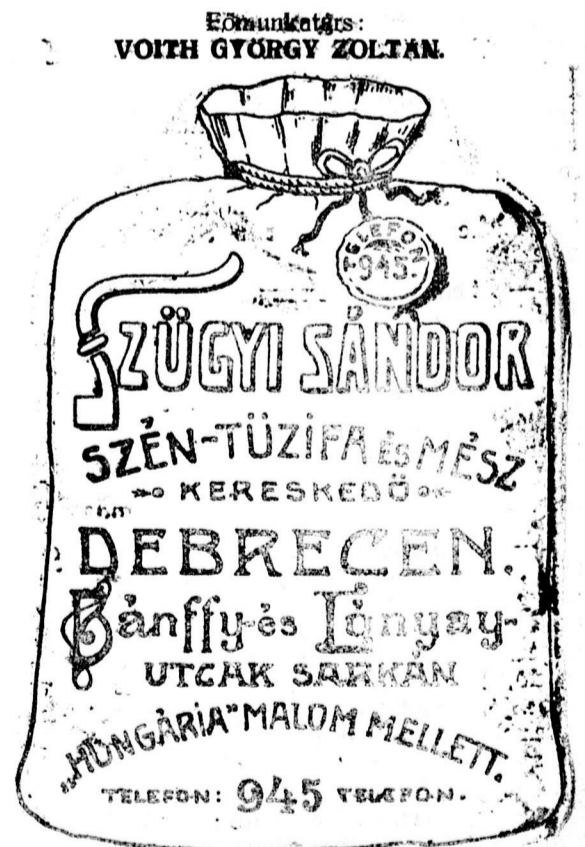 Főmunkatárs:
VOITH GYÖRGY ZOLTÁN.
TELEFON
945.
SZÜGYI SÁNDOR
SZÉN-TÜZIFA és MÉSZ
KERESKEDŐ
DEBRECEN.
Bánffy-és Lónyay-
UTCÁK SARKÁN
„HUNGÁRIA” MALOM MELLETT.
TELEFON: 945 TELEFON.